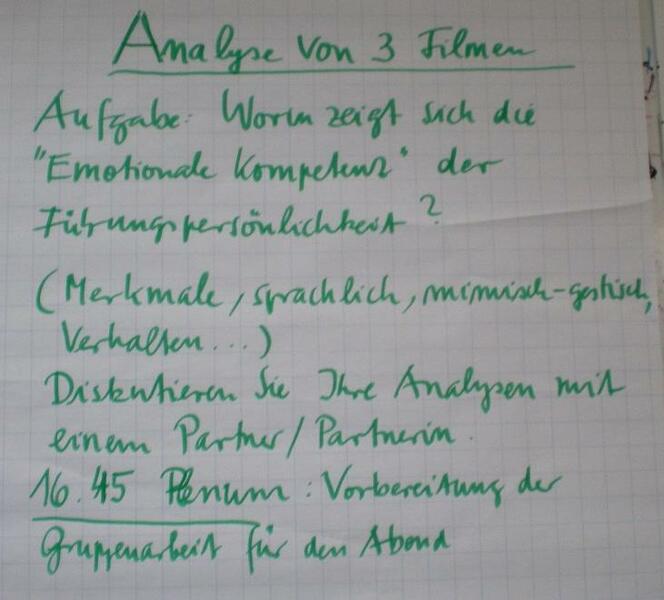 Analyse von 3 Filmen
Aufgabe: Worin zeigt sich die
"Emotionale Kompetenz" der
Führungspersönlichkeit?
(Merkmale, sprachlich, mimisch-gestisch,
Verhalten...)
Diskutieren Sie Ihre Analysen mit
einem Partner/Partnerin.
16.45 Plenum: Vorbereitung der
Gruppenarbeit für den Abend